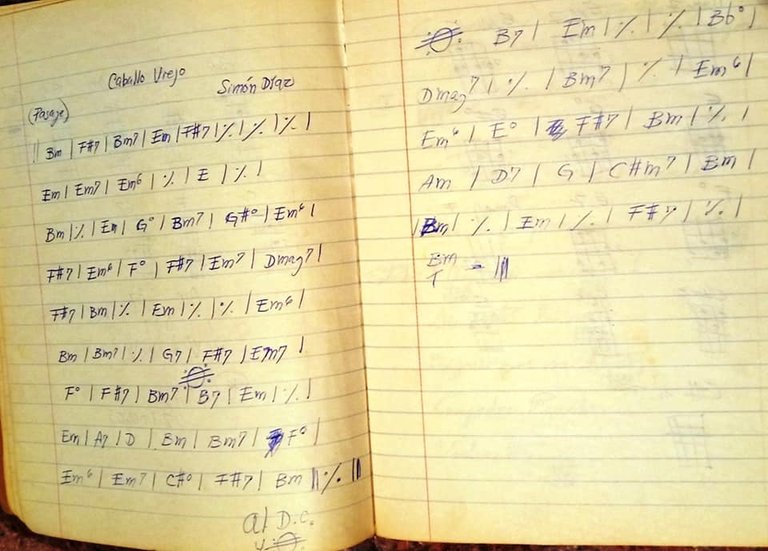 Caballo Viejo
Simón Díaz
(Pasaje)
|| Bm | F#7 | Bm7 | Em | F#7 | ٪ | ٪ | ٪ |
Em | Em7 | Em6 | ٪ | E | ٪ |
Bm | ٪ | Em | G° | Bm7 | G#° | Em6 |
F#7 | Em6 | F° | F#7 | Em7 | Dmaj7 |
F#7 | Bm | ٪ | Em | ٪ | ٪ | Em6 |
Bm | Bm7 | ٪ | G7 | F#7 | Em7 |
F° | F#7 | Bm7 | B7 | Em | ٪ |
Em | A7 | D | Bm | Bm7 | F° |
Em6 | Em7 | C#° | F#7 | Bm || ٪ ||
al D.C.
y
B7 | Em | ٪ | ٪ | Bb° |
Dmaj7 | ٪ | Bm7 | ٪ | Em6 |
Em6 | E° | F#7 | Bm | ٪ |
Am | D7 | G | C#m7 | Bm |
| Bm | ٪ | Em | ٪ | F#7 | ٪ |
Bm - ||
T